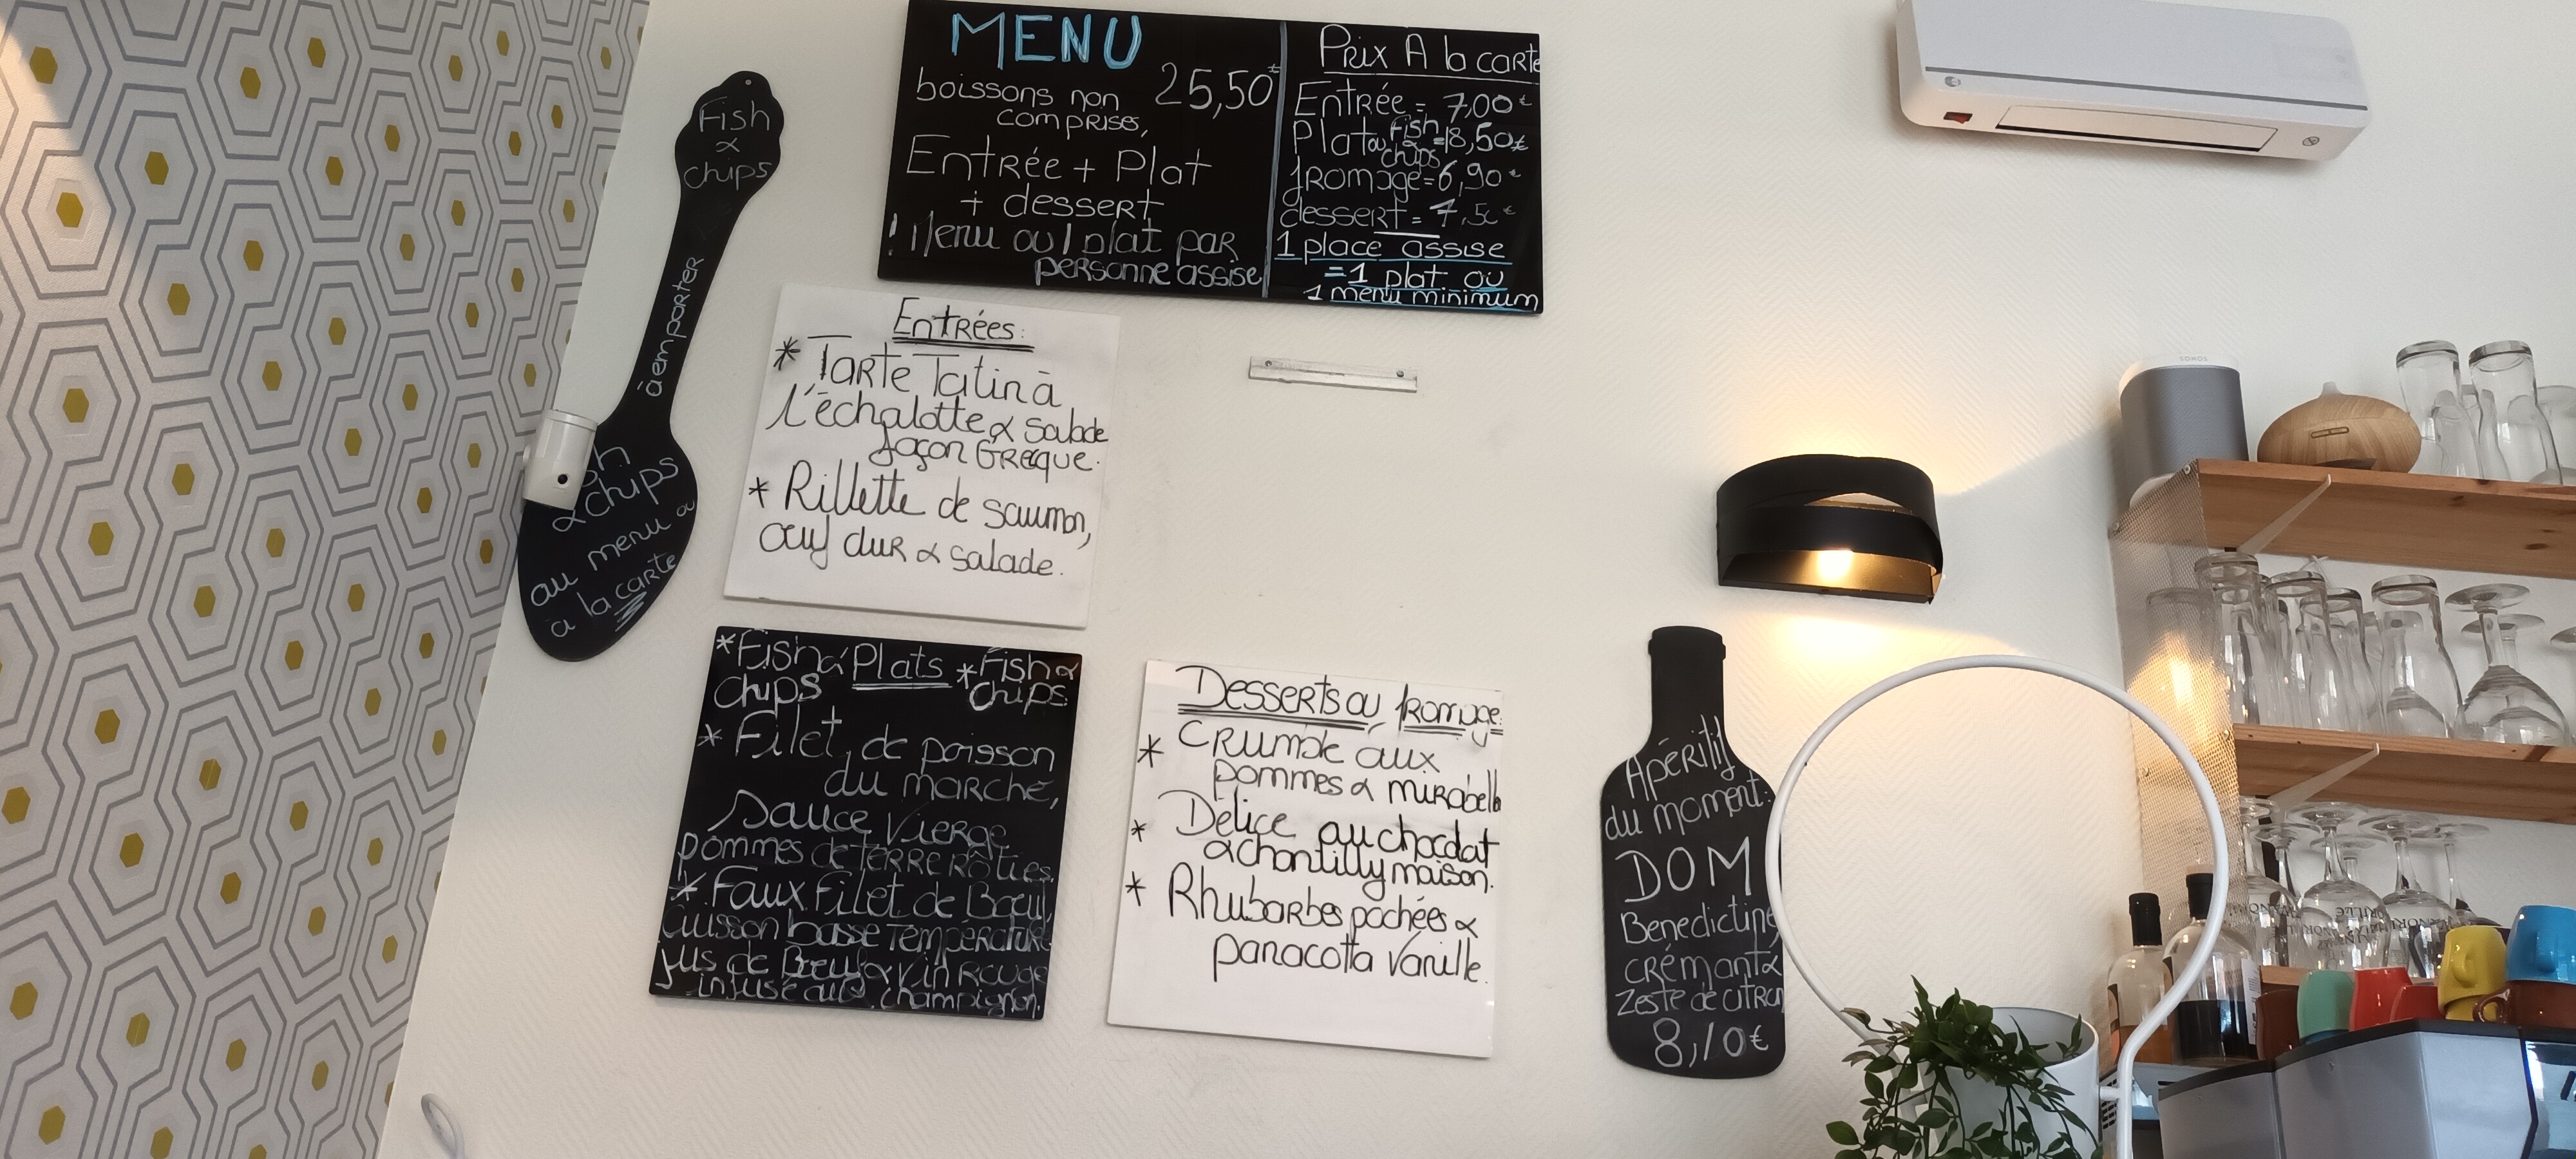 Fish
&
chips
à emporter
& chips
au menu ou
a la carte
MENU
boissons non 25,50€
comprises,
Entrée + Plat
+ dessert
! Menu ou 1 plat par
personne assise
Prix A la carte
Entrée = 7,00€
Plat ou Fish & chips = 18,50€
fromage = 6,90€
dessert = 7,50€
1 place assise
= 1 plat ou
1 menu minimum
Entrées:
* Tarte Tatin à
l'échalotte & salade
façon Grecque.
* Rillette de saumon,
œuf dur & salade.
*Fish & Plats *Fish &
Chips Chips
* Filet de poisson
du marché,
Sauce Vierge
pommes de terre rôties.
* Faux Filet de Bœuf,
Cuisson basse Température
jus de Bœuf & Vin Rouge
infusé aux champignon.
Desserts ou fromage:
* Crumble aux
pommes & mirabelle
* Délice au chocolat
& chantilly maison.
* Rhubarbes pochées &
panacotta Vanille.
Apéritif
du moment:
DOM
Benedictine
crémant &
Zeste de citron
8,10€
SONOS